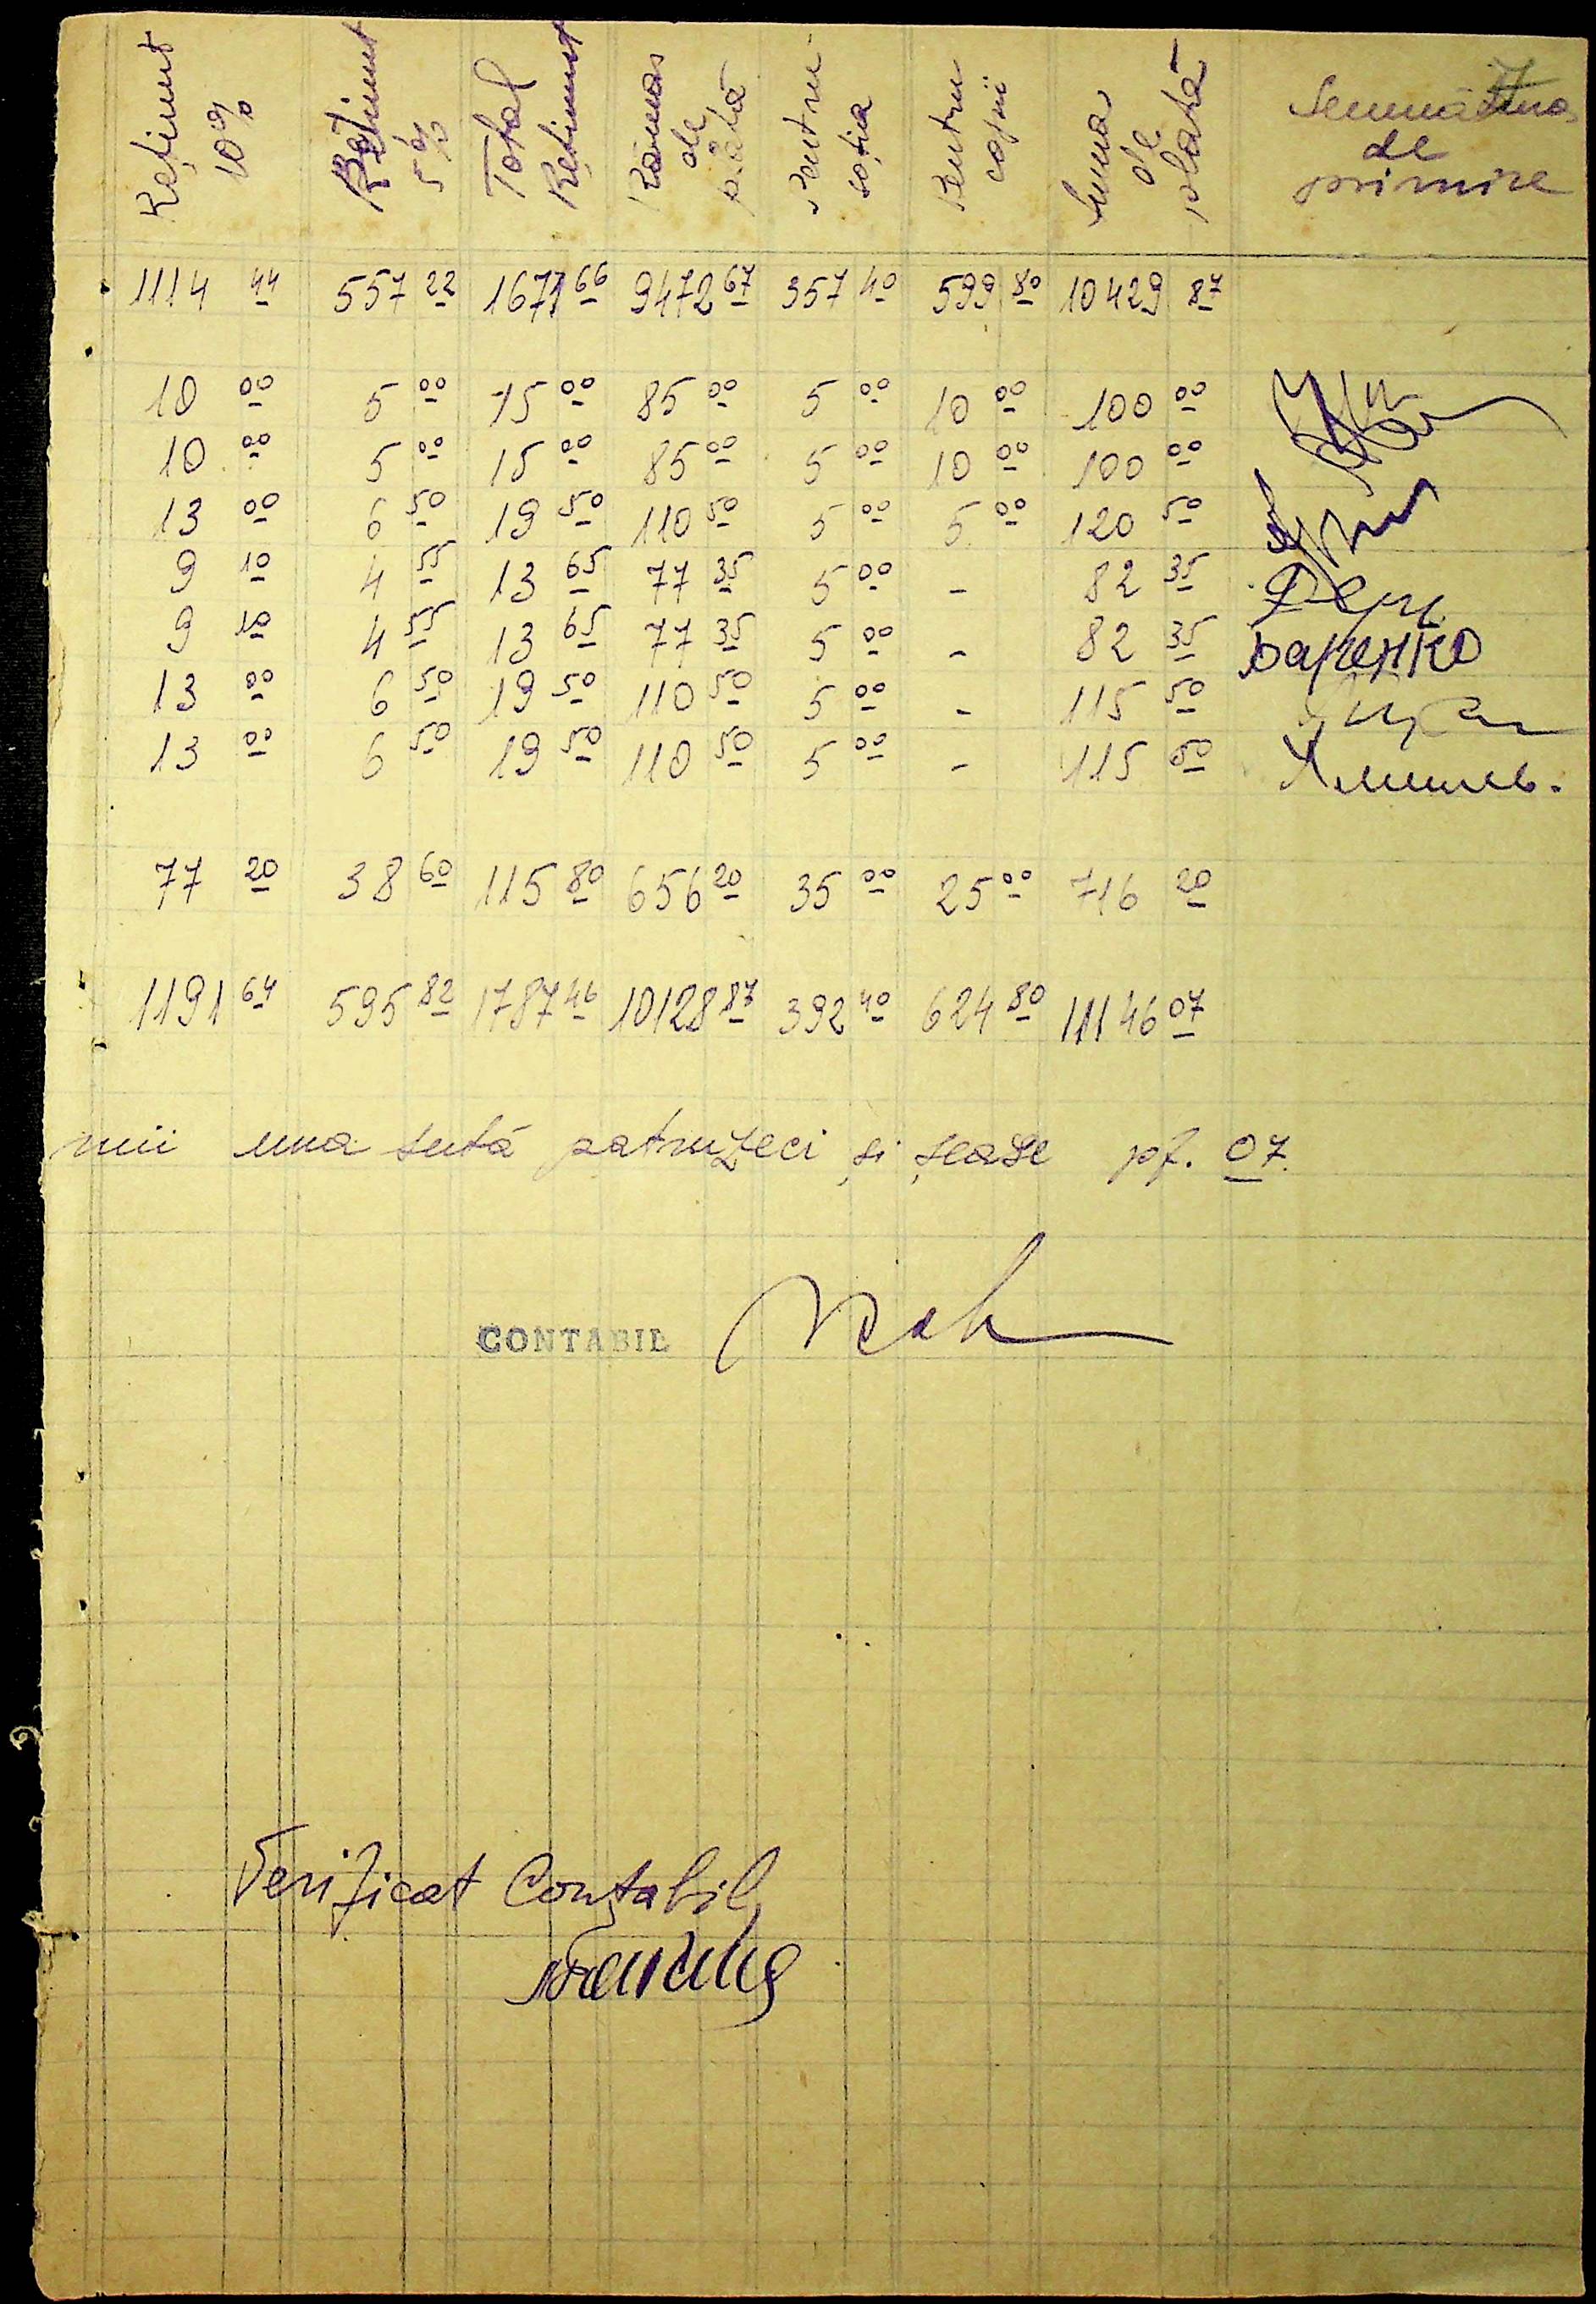 Reținut 10% Reținut 5% Total Reținut Rămas de plată Pentru soția Pentru copii Suma de plată Semnătura de primire
1114 44 557 22 1671 66 9472 67 357 40 599 80 10429 87
10 00 5 00 15 00 85 00 5 00 10 00 100 00
10 00 5 00 15 00 85 00 5 00 10 00 100 00
13 00 6 50 19 50 110 50 5 00 5 00 120 50
9 10 4 55 13 65 77 35 5 00 - 82 35
9 10 4 55 13 65 77 35 5 00 - 82 35
13 00 6 50 19 50 110 50 5 00 - 115 50
13 00 6 50 19 50 110 50 5 00 - 115 50
77 20 38 60 115 80 656 20 35 00 25 00 716 20
1191 64 595 82 1787 46 10128 87 392 40 624 80 11146 07
mii una sută patruzeci și șease pf. 07.
CONTABIL
Verificat Contabil